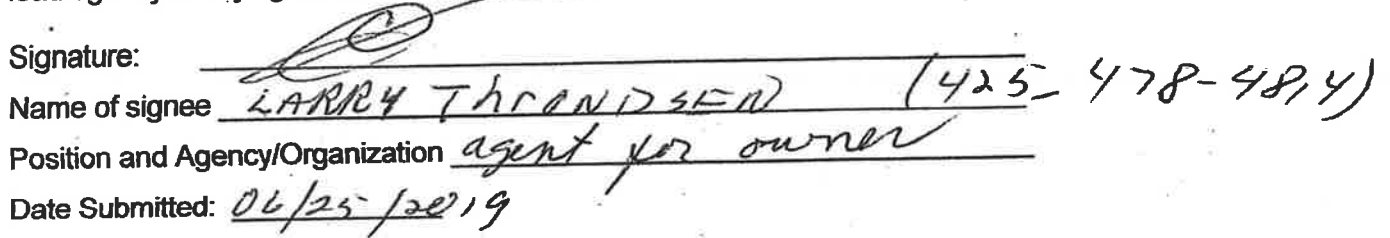 Signature:
Name of signee LARRY ThrONDSEN (425-478-4814)
Position and Agency/Organization agent for owner
Date Submitted: 06/25/2019